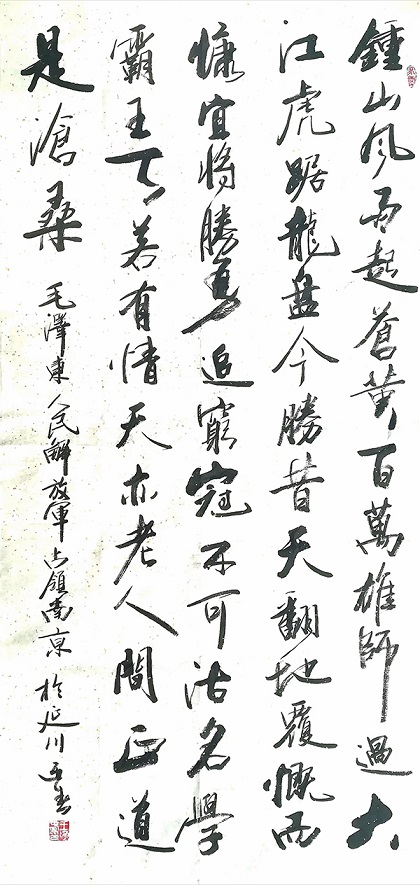 鍾山風雨起蒼黃百萬雄師過大
江虎踞龍盤今勝昔天翻地覆慨而
慷宜將勝勇追窮寇不可沽名學
霸王天若有情天亦老人間正道
是滄桑 毛澤東人民解放軍占領南京 於延川